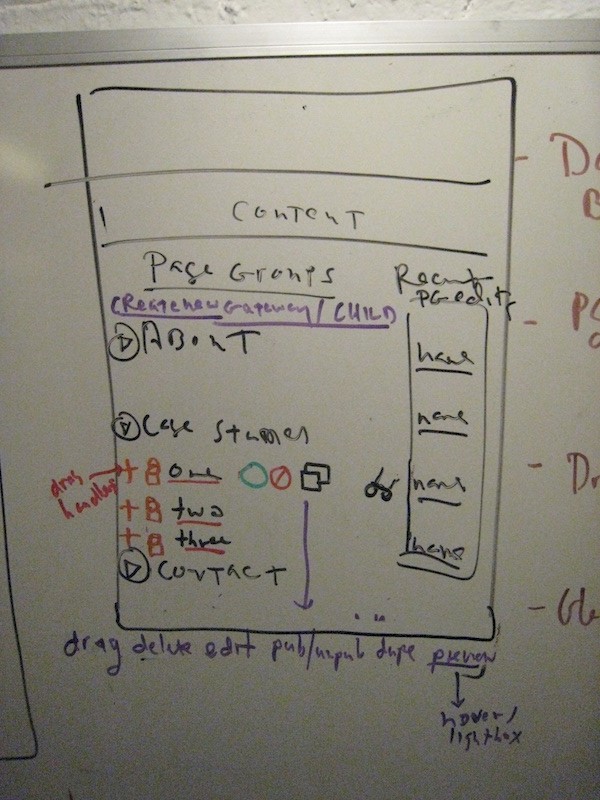 CONTENT
Page Groups
Recent
PG edits
Create new Gateway / CHILD
ABOUT
name
name
Case Studies
drag
handles
one
name
two
three
name
CONTACT
drag delete edit pub/unpub dupe preview
hover/
lightbox
PG
Dr